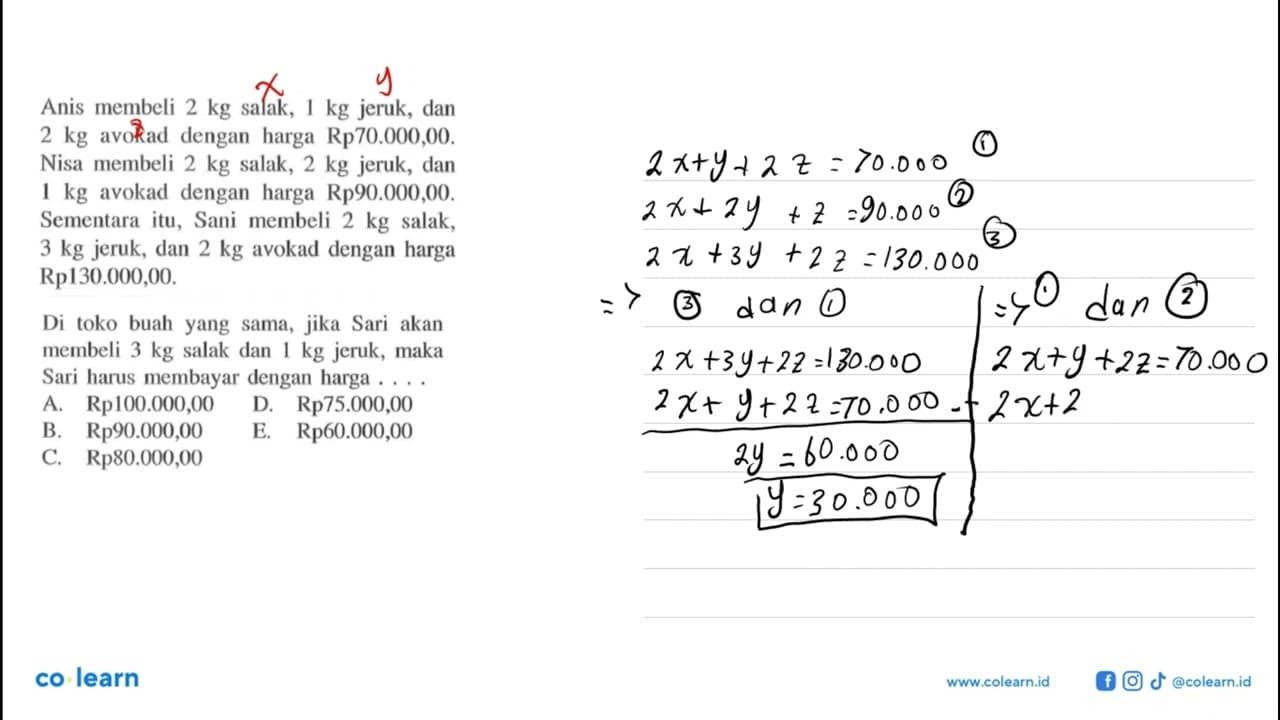 x y
Anis membeli 2 kg salak, 1 kg jeruk, dan
2 kg avokad dengan harga Rp70.000,00.
Nisa membeli 2 kg salak, 2 kg jeruk, dan
1 kg avokad dengan harga Rp90.000,00.
Sementara itu, Sani membeli 2 kg salak,
3 kg jeruk, dan 2 kg avokad dengan harga
Rp130.000,00.
Di toko buah yang sama, jika Sari akan
membeli 3 kg salak dan 1 kg jeruk, maka
Sari harus membayar dengan harga . . . .
A. Rp100.000,00 D. Rp75.000,00
B. Rp90.000,00 E. Rp60.000,00
C. Rp80.000,00
2x+y+2z=70.000 ①
2x+2y+z=90.000 ②
2x+3y+2z=130.000 ③
=> ③ dan ①
2x+3y+2z=130.000
2x+y+2z=70.000 -
2y=60.000
y=30.000
=> ① dan ②
2x+y+2z=70.000
2x+2
co learn
www.colearn.id
@colearn.id